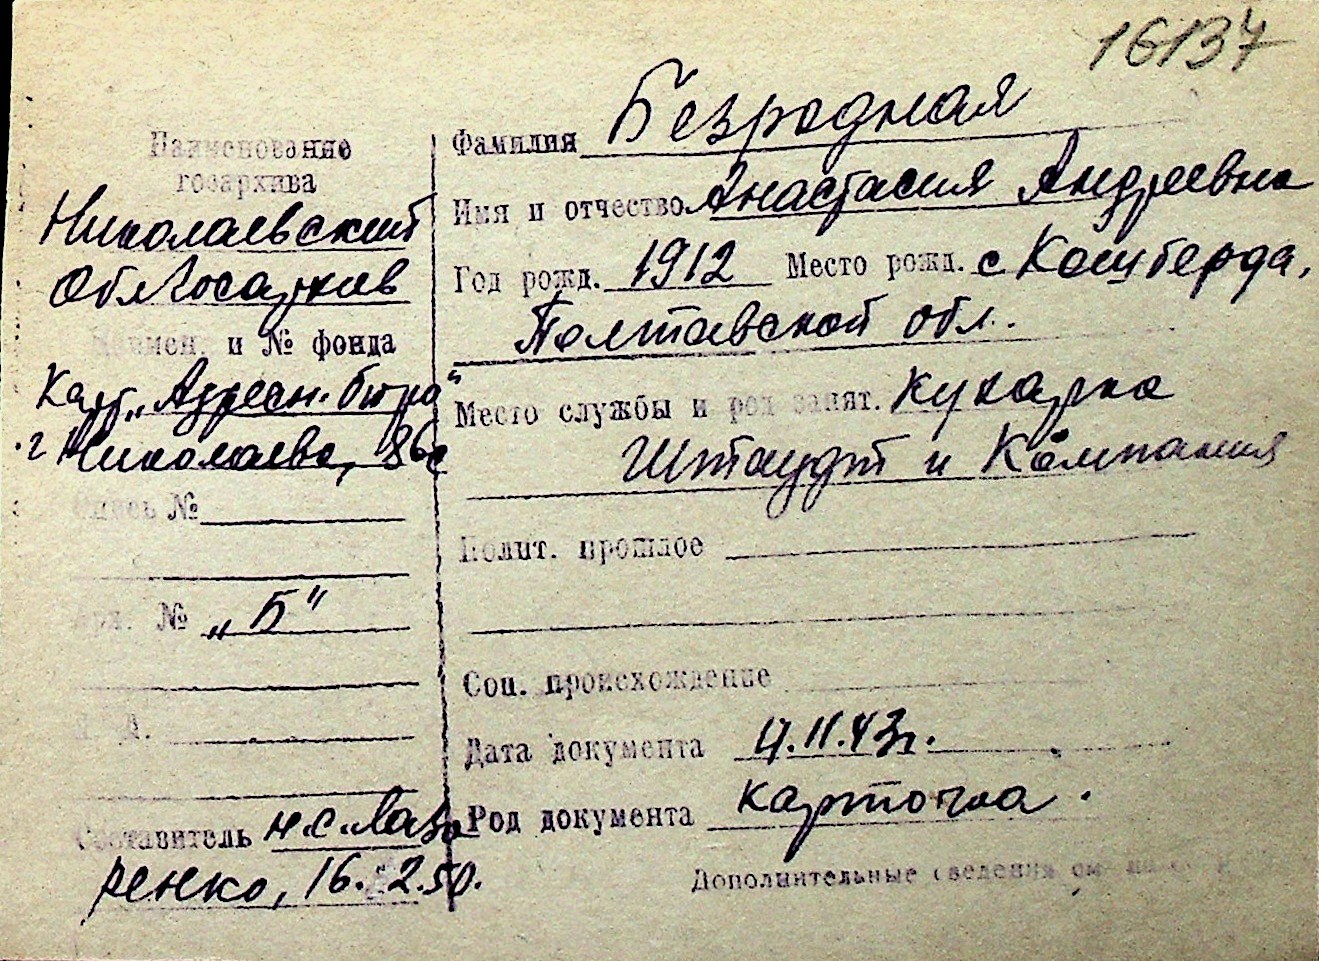 16137
Наименование
госархива
Николаевский
Облгосархив
Наимен. и № фонда
Карт. „Адресн. бюро"
г Николаева,
Опись №
Арх. № „Б"
Составитель Н.С. Лаза
ренко, 16. 2.50.
Фамилия Безродная
Имя и отчество Анастасия Андреевна
Год рожд. 1912 Место рожд. с
Полтавской обл.
Место службы и род занят. Кухарка
Штаудт и Компания
Полит. прошлое
Соц. происхождение
Дата документа 4.II.43г.
Род документа карточка.
Дополнительные сведения см.